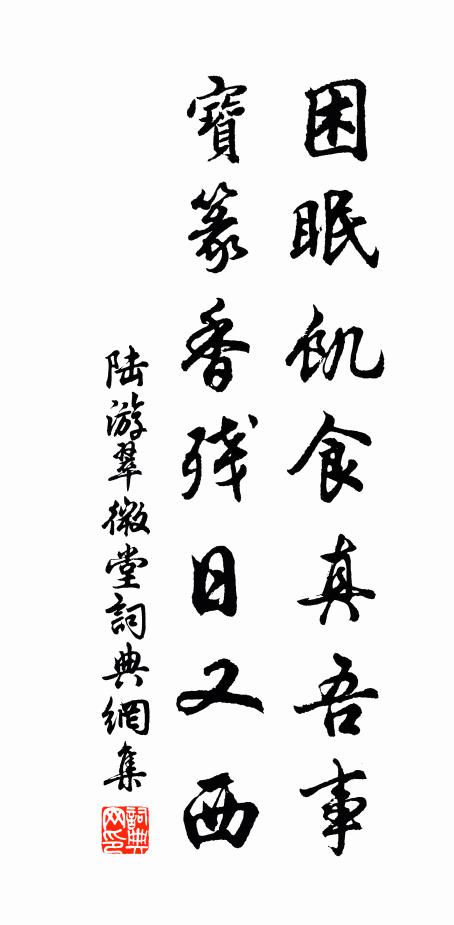 困眠飢食真吾事
寶篆香殘日又西
陆游翠微堂詞典網集
詞典网印